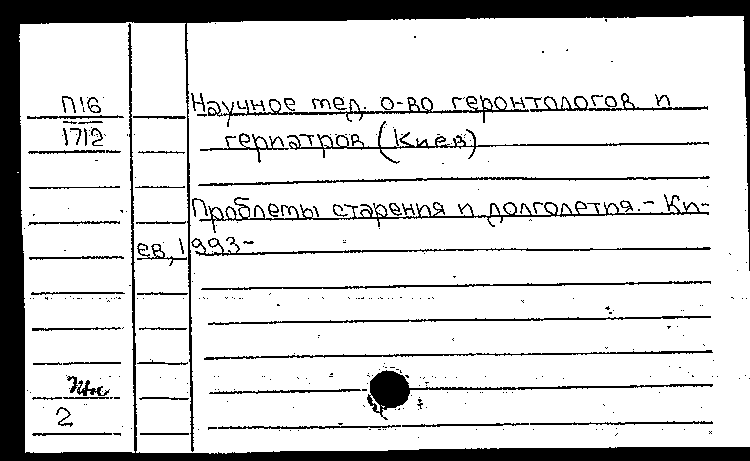 П16
1712
Научное мед. о-во геронтологов и
гериатров (Киев)
Проблемы старения и долголетия. - Ки-
ев, 1993-
2